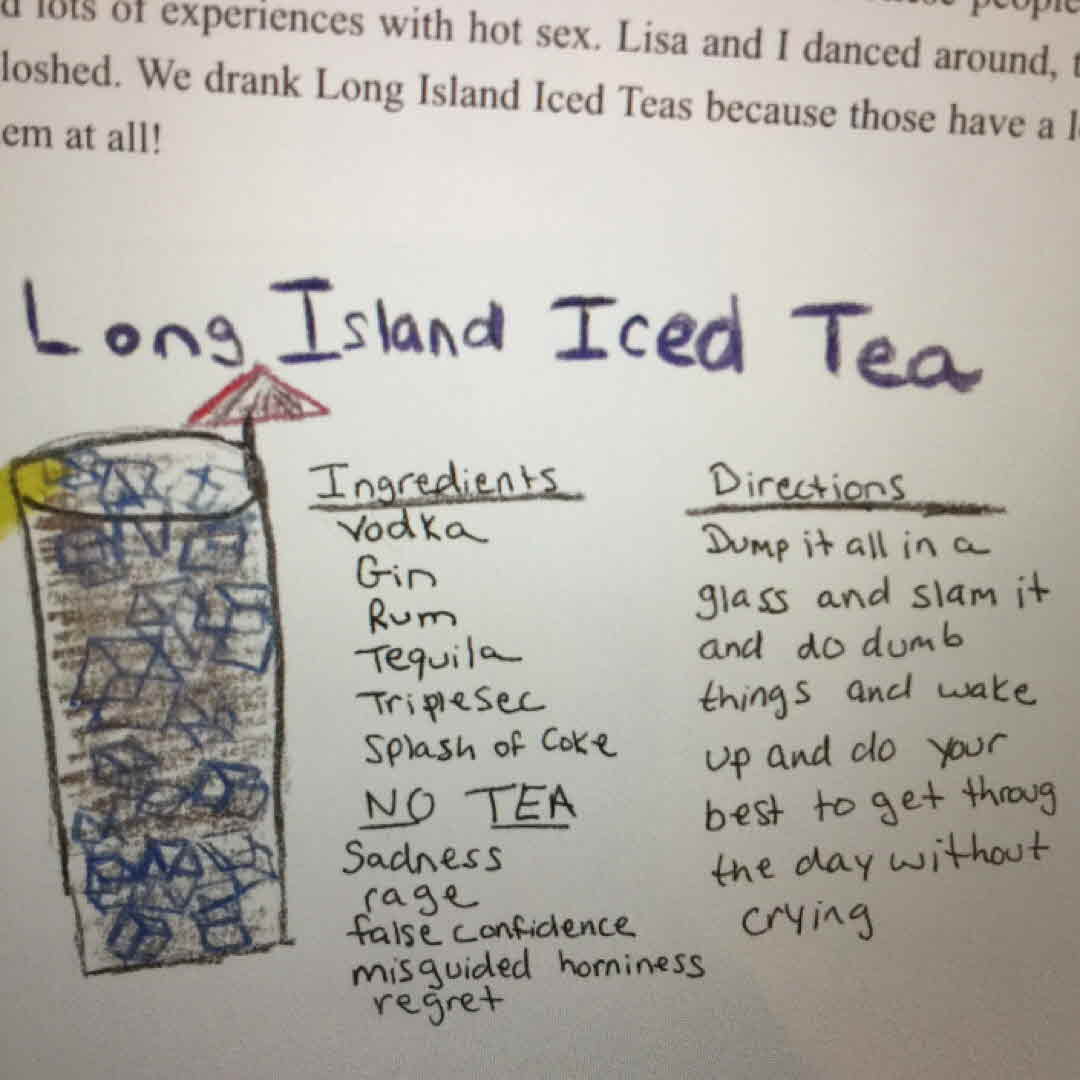 lots of experiences with hot sex. Lisa and I danced around,
loshed. We drank Long Island Iced Teas because those have a l
em at all!
Long Island Iced Tea
Ingredients
Vodka
Gin
Rum
Tequila
Triple sec
Splash of Coke
NO TEA
Sadness
rage
false confidence
misguided horniness
regret
Directions
Dump it all in a
glass and slam it
and do dumb
things and wake
up and do your
best to get throug
the day without
crying